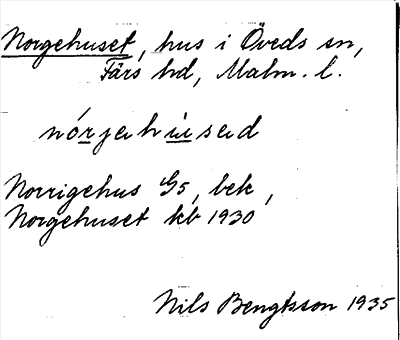 Norgehuset, hus i Öveds sn,
Färs hd, Malm. l.
nórjehu̇sed
Norrigehus G5, bek,
Norgehuset kb 1930
Nils Bengtsson 1935